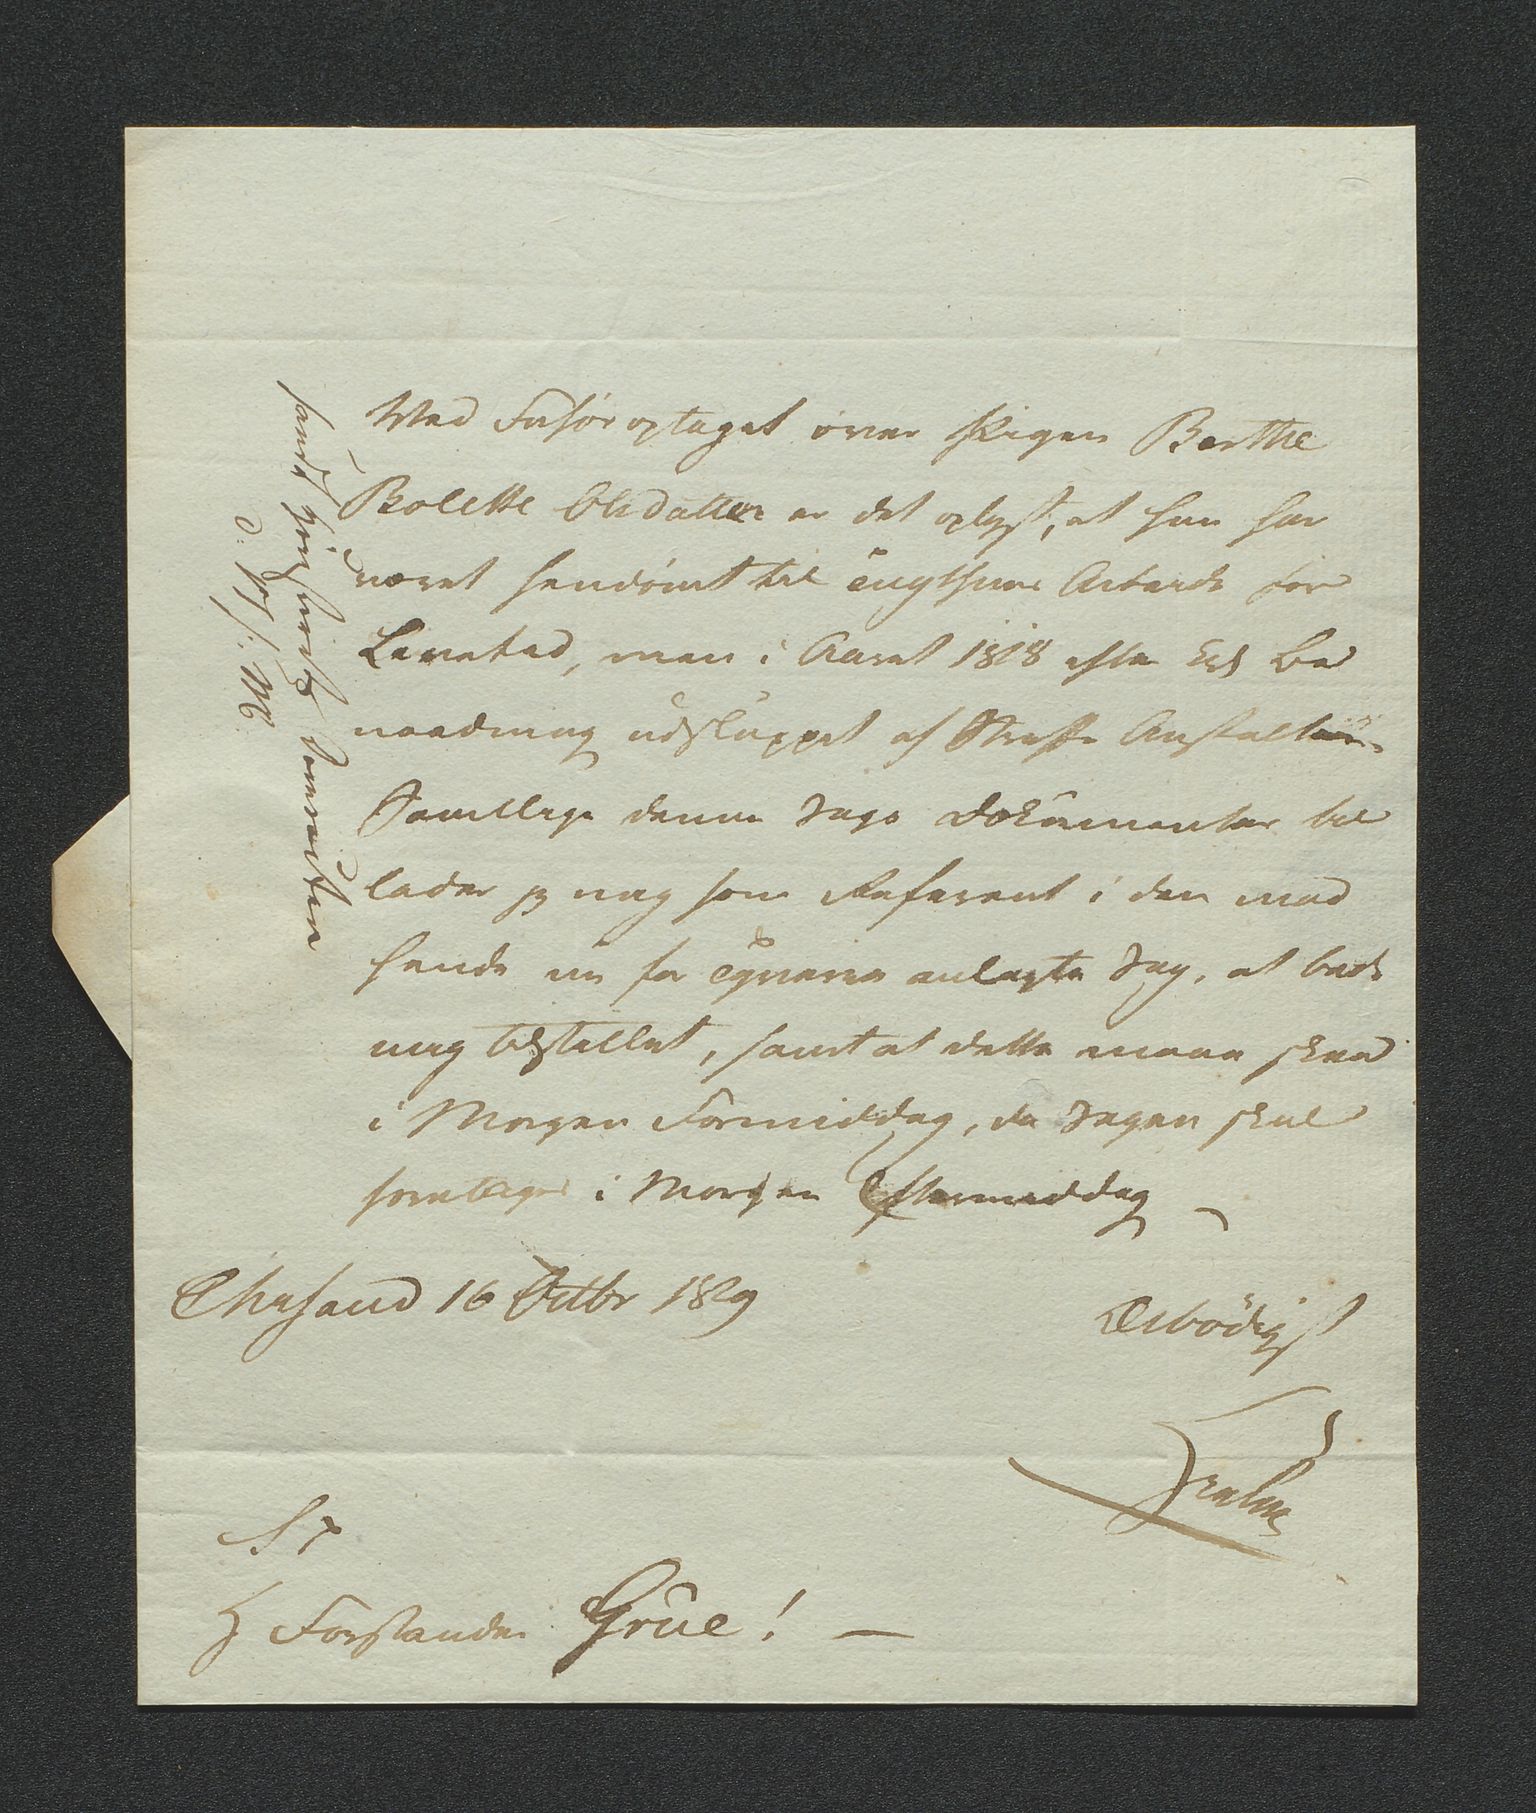 Ved Forhör optaget over Pigen Berthe
Bolette Olsdatter er det oplyst, at hun har
været hendömt til Tugthuus Arbeide for
Livstid, men i Aaret 1818 efter Kgl Be
naadning udsluppet af Straffe Anstalten.
Samtlige denne Sags Dokumenter til
lader jeg mig som Referent i den mod
hende nu for Tyverie anlagte Sag, at bede
mig tilstillet, samt at dette maae skee
i Morgen Formiddag, da Sagen skal
foretages i Morgen Eftermiddag
Chrsand 16 Octbr 1829
Ærbödigst
S T
H Forstander Grüe! —
sendt